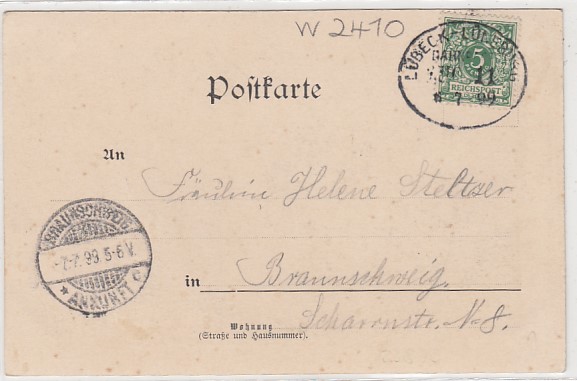 W 2410
LÜBECK-LÜNEBURG
BAHN
11
7 99
5
REICHSPOST
Postkarte
An
Fräulein Helene Steltzer
BRAUNSCHWEIG
-7.7.99.5-6V.
* ANKUNFT c
in Braunschweig.
Wohnung
(Straße und Hausnummer).
Scharrnstr. No 8.